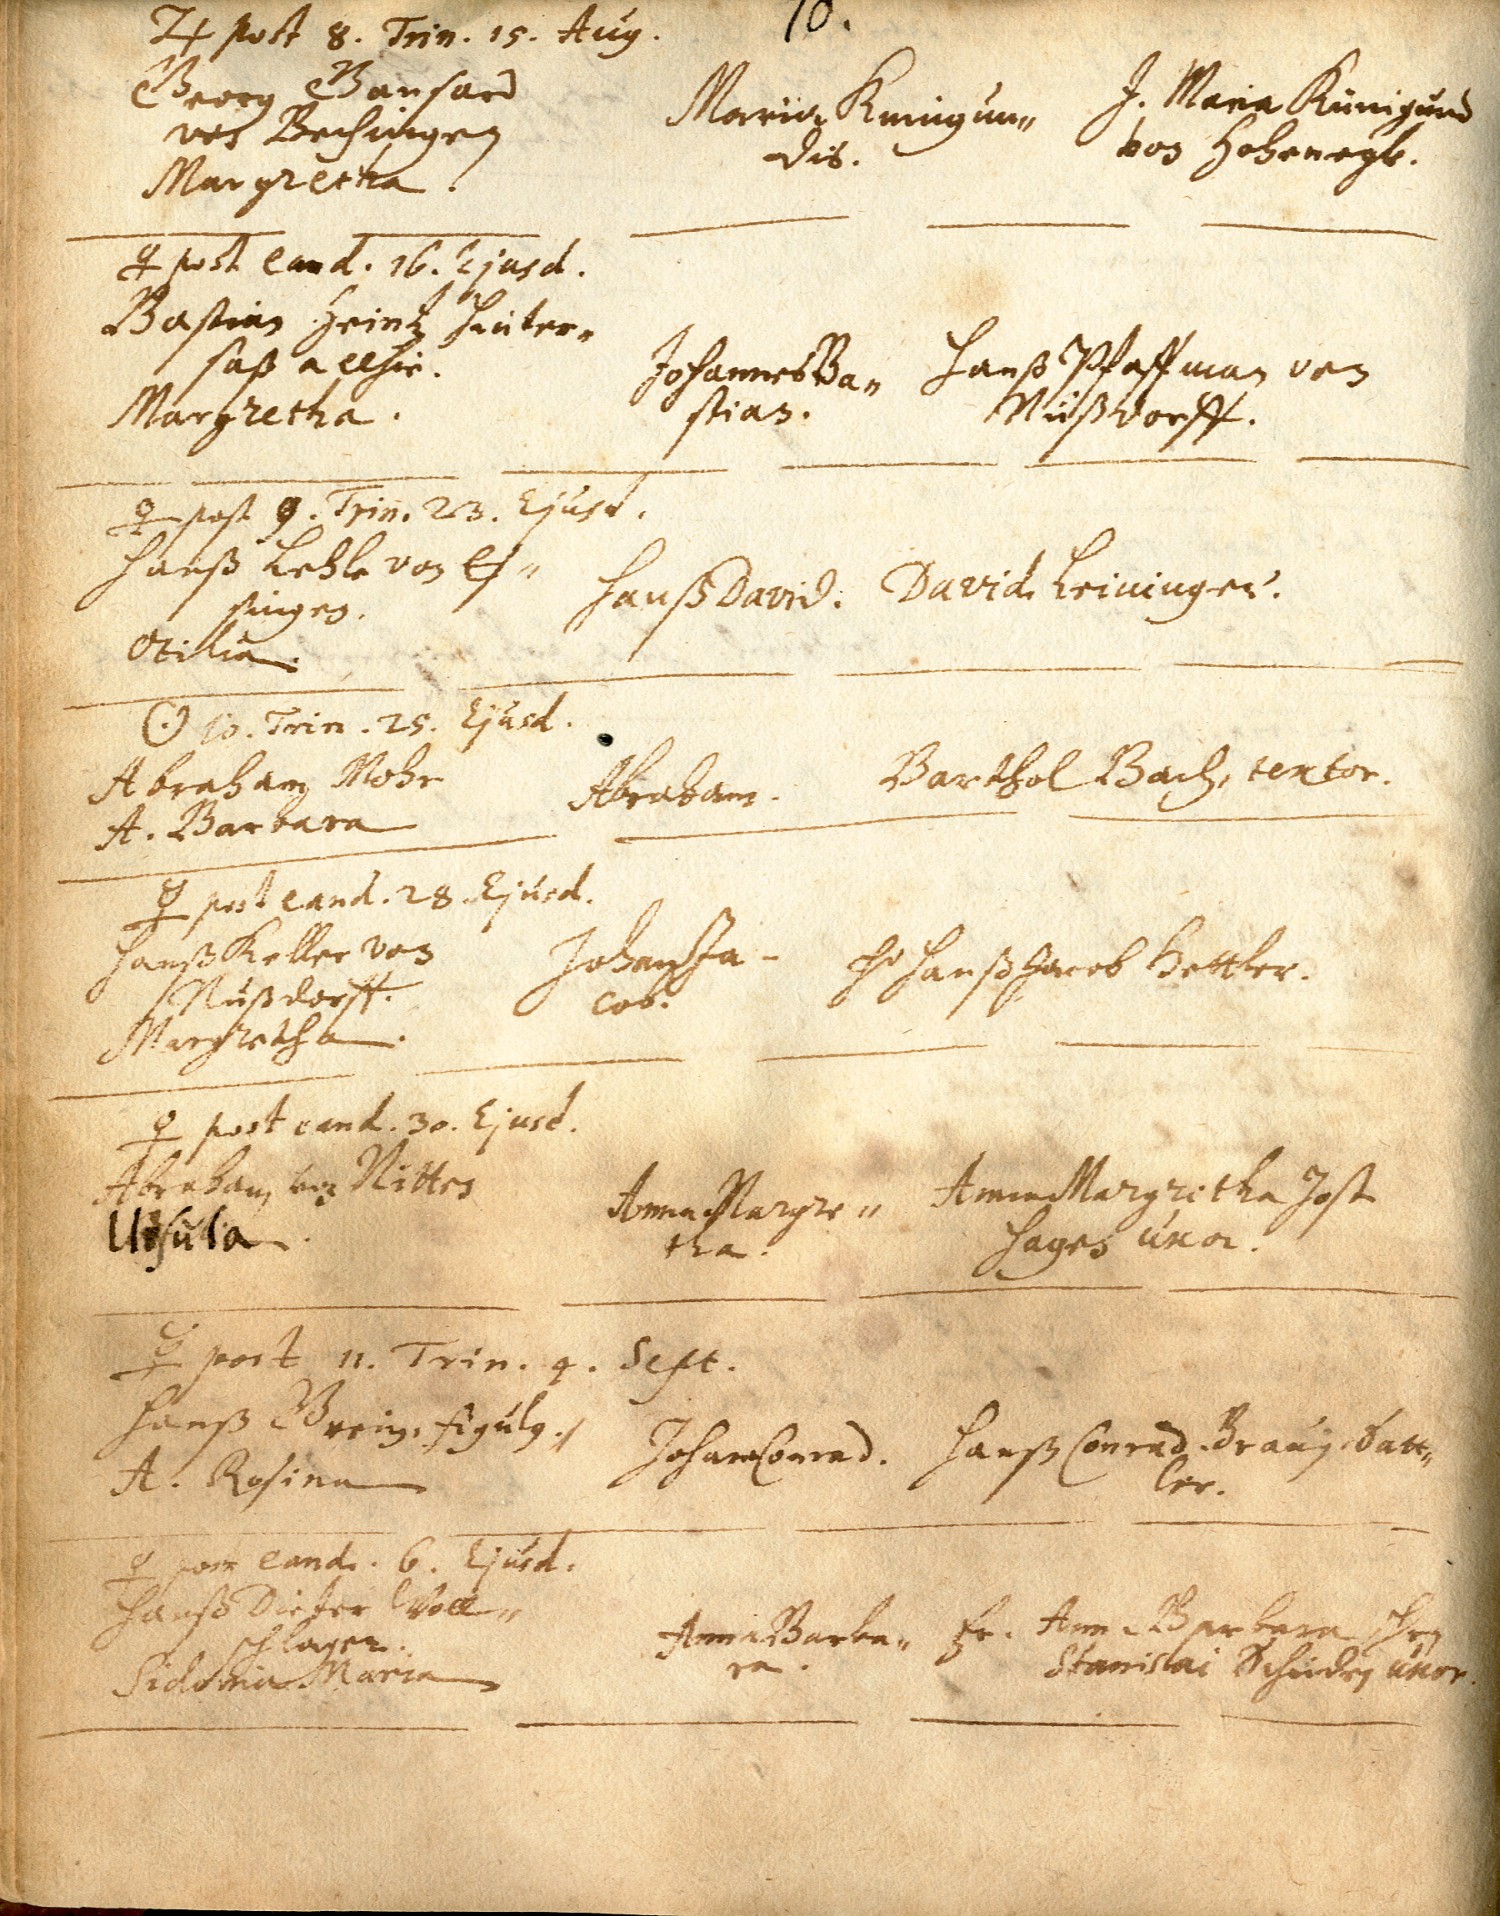 10.
♃ post 8. Trin. 15. Aug.
Georg Bansard
von Bechingen
Margretha.
Maria Kunigun„
dis.
J. Maria Künigund
von Hohenegk.
♀ post eand. 16. Ejusd.
Bastian Heintz Hinter„
saß allhie.
Margretha.
Johannes Ba„
stian.
Hanß Pfaffman von
Nüßdorff.
♀ post 9. Trin. 23. Ejusd.
Hanß Lehle von Es„
singen.
Otilia.
Hanß David.
David Leininger.
☉ 10. Trin. 25. Ejusd.
Abraham Mohr
A. Barbara
Abraham.
Barthol Bach, textor.
☿ post eand. 28. Ejusd.
Hanß Keller von
Nußdorff.
Margretha.
Johan Ja-
cob.
Hanß Jacob Hettler.
♀ post eand. 30. Ejusd.
Abraham von Nitten
Ursula.
Anna Margre„
tha.
Anna Margretha Jost
Hagen uxor.
☿ post 11. Trin. 4. Sept.
Hanß figuly.
A. Rosina
Johan Conrad.
Hanß Conrad Braun Satt„
ler.
♀ post eand. 6. Ejusd.
Hanß Dieter Woll„
schlager.
Sidonia Maria
Anna Barba„
ra.
Fr. Anna Barbara
Stanislai uxor.